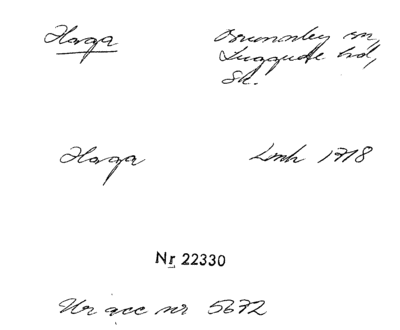 Haga Brunnby sn,
Luggude hd,
Sk.
Haga Lmh 1718
Nr 22330
Ur acc nr 5672